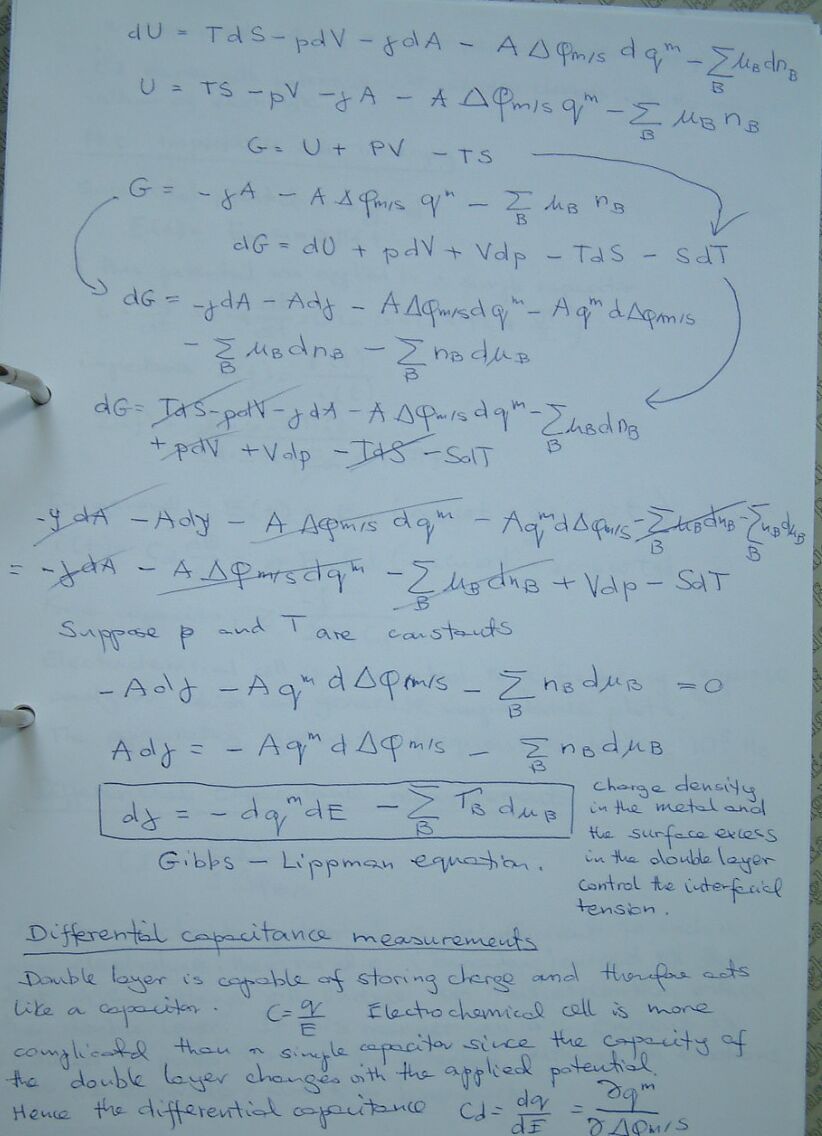 dU = TdS - pdV - γdA - A Δφm/s dqᵐ - Σ_B μB dnB
U = TS - pV - γA - A Δφm/s qᵐ - Σ_B μB nB
G = U + PV - TS
G = -γA - A Δφm/s qᵐ - Σ_B μB nB
dG = dU + pdV + Vdp - TdS - SdT
dG = -γdA - Adγ - AΔφm/s dqᵐ - Aqᵐ dΔφm/s
- Σ_B μB dnB - Σ_B nB dμB
dG = TdS - pdV - γdA - A Δφm/s dqᵐ - Σ_B μB dnB
+ pdV + Vdp - TdS - SdT
-γdA - Adγ - A Δφm/s dqᵐ - Aqᵐ dΔφm/s - Σ_B μB dnB - Σ_B nB dμB
= -γdA - A Δφm/s dqᵐ - Σ_B μB dnB + Vdp - SdT
Suppose p and T are constants
- Adγ - Aqᵐ dΔφm/s - Σ_B nB dμB = 0
Adγ = - Aqᵐ dΔφm/s - Σ_B nB dμB
dγ = - dqᵐ dE - Σ_B ΓB dμB
Gibbs - Lippman equation.
charge density
in the metal and
the surface excess
in the double layer
control the interfacial
tension.
Differential capacitance measurements
Double layer is capable of storing charge and therefore acts
like a capacitor. C = q/E Electrochemical cell is more
complicated than a simple capacitor since the capacity of
the double layer changes with the applied potential.
Hence the differential capacitance Cd = dq/dE = ∂qᵐ/∂Δφm/s